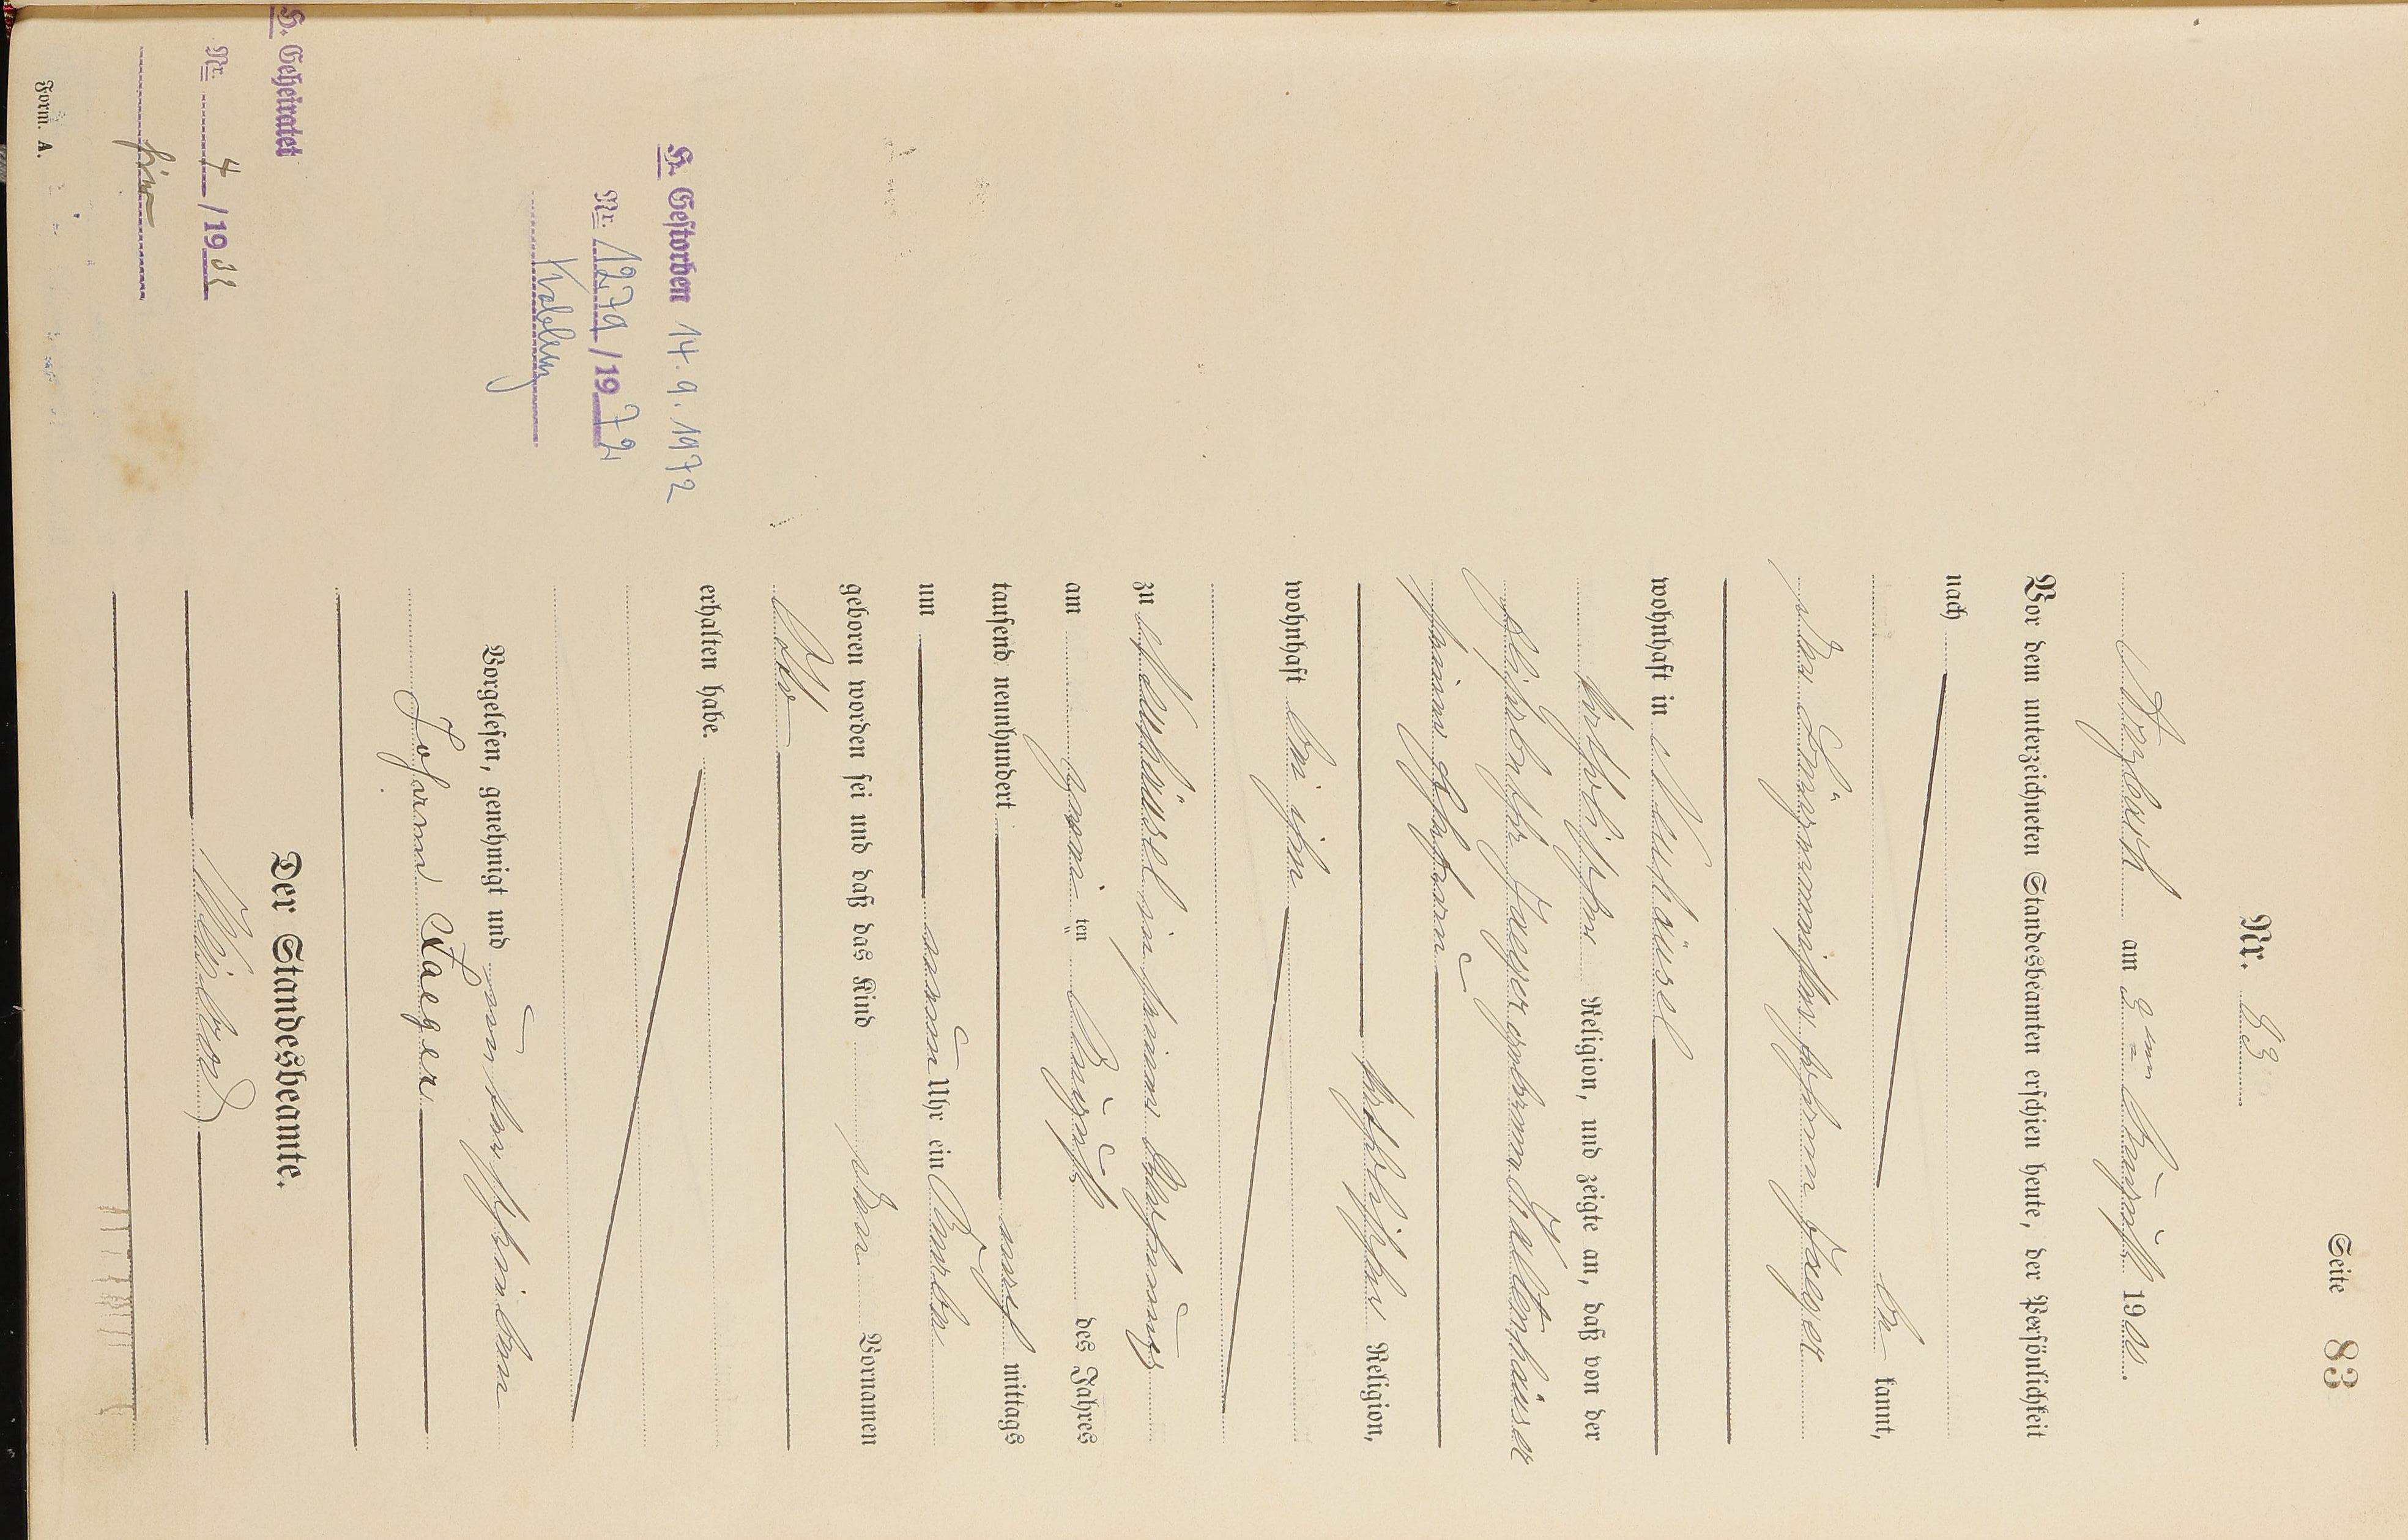 Seite 83
Nr. 83
am 3ten August 1900.
Vor dem unterzeichneten Standesbeamten erschien heute, der Persönlichkeit
nach
be kannt,
der Johann Jaeger
wohnhaft in Neuhäusel
katholischer Religion, und zeigte an, daß von der
Elisabetha Jaeger geborene Kaltenhäuser
seiner Ehefrau
katholischer Religion,
wohnhaft bei ihm
zu Neuhäusel in seiner Wohnung
am zwei ten August des Jahres
tausend neunhundert nach mittags
um neun Uhr ein Knabe
geboren worden sei und daß das Kind den Vornamen
Otto
erhalten habe.
Vorgelesen, genehmigt und unterschrieben
Johann Jaeger
Der Standesbeamte.
H. Gestorben 14.9.1972
Nr. 1279/1972
Koblenz
H. Geheiratet
Nr. 4/19
hier
Form. A.